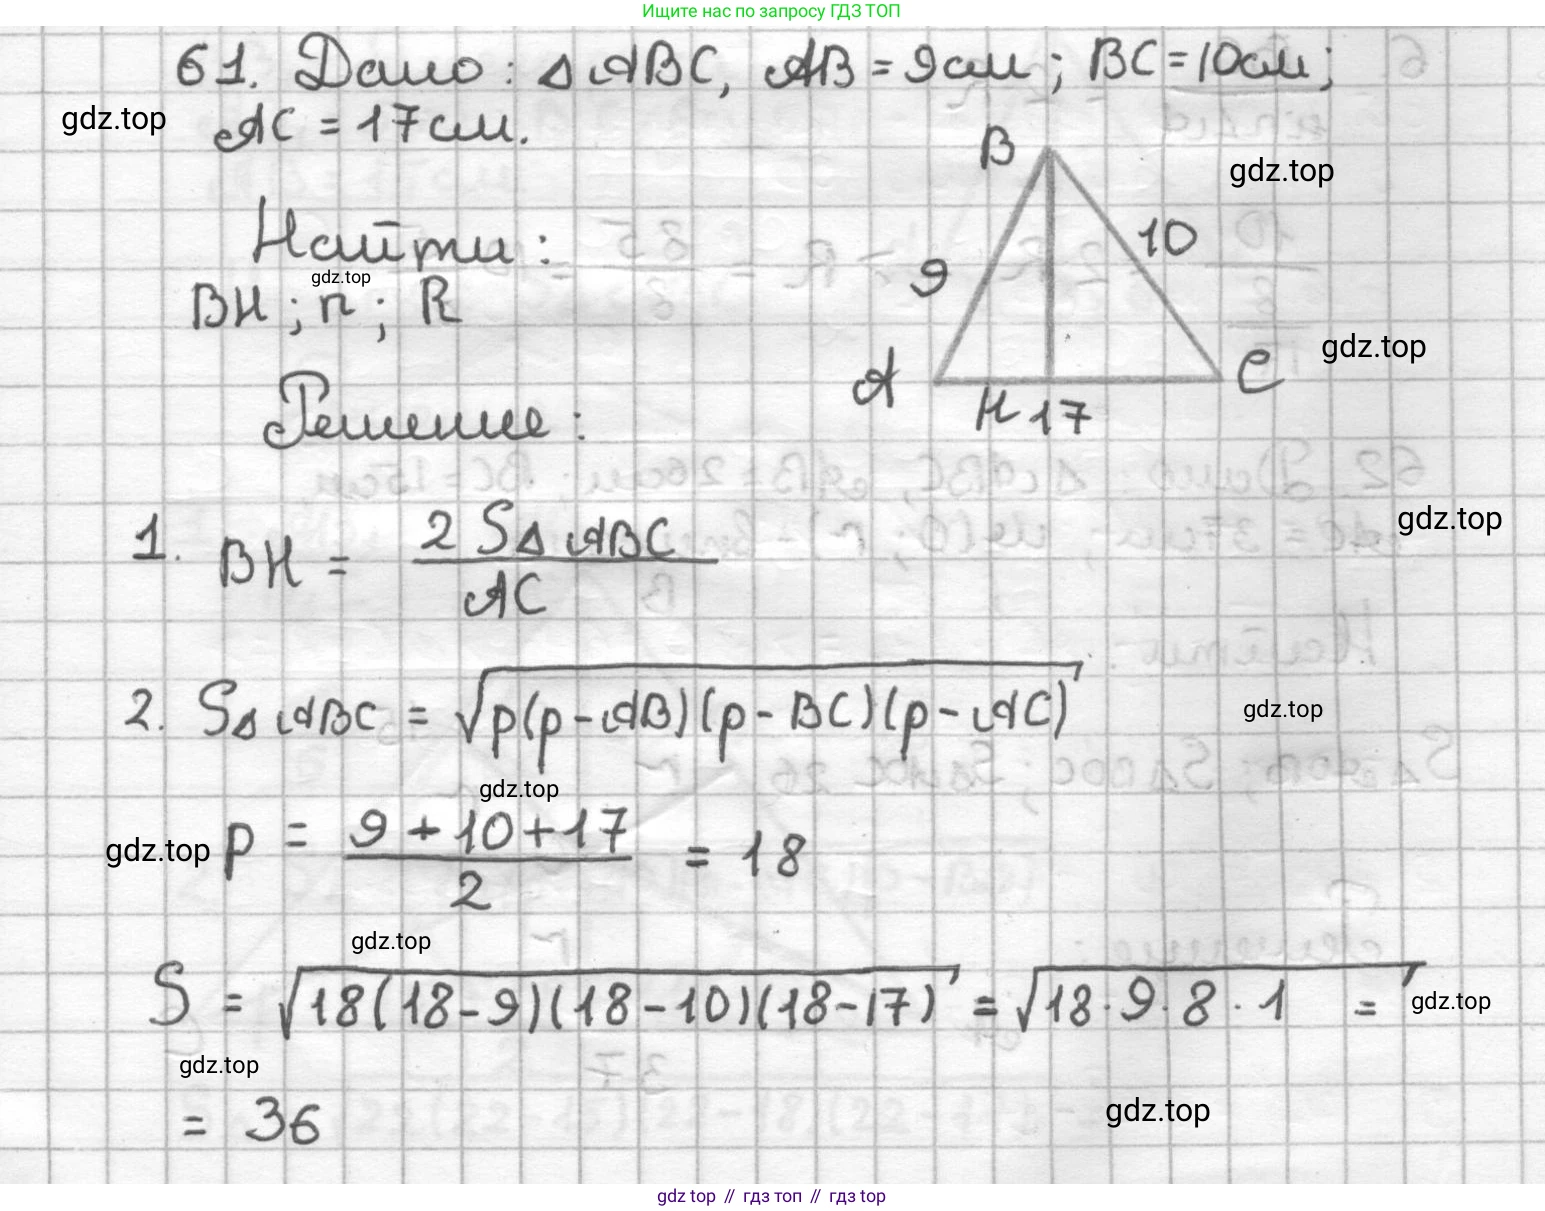 Ищите нас по запросу ГДЗ ТОП
61. Дано: △ABC, AB = 9см; BC = 10см;
gdz.top
AC = 17см.
B
gdz.top
Найти:
10
gdz.top
9
BH; r; R
gdz.top
A
C
H 17
Решение:
gdz.top
1. BH = 2 S△ABC / AC
2. S△ABC = √p(p-AB)(p-BC)(p-AC)
gdz.top
gdz.top
gdz.top
p = (9 + 10 + 17) / 2 = 18
gdz.top
S = √18(18-9)(18-10)(18-17) = √18·9·8·1 =
gdz.top
gdz.top
= 36
gdz.top
gdz top // гдз топ // gdz top